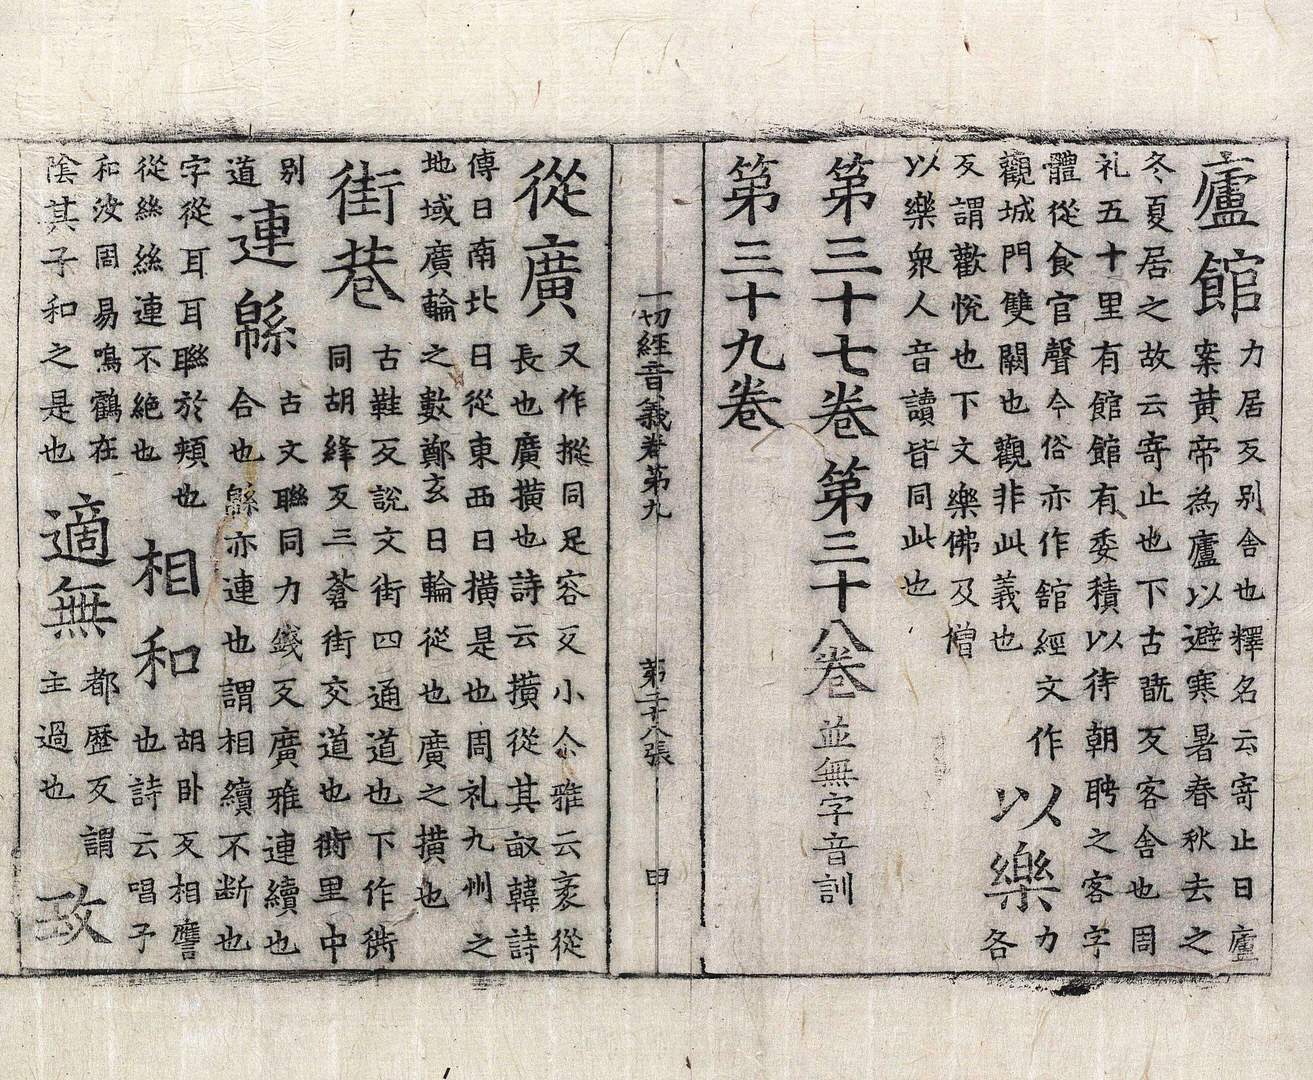 廬館力居反別舍也釋名云寄止曰廬
案黃帝為廬以避寒暑春秋去之
冬夏居之故云寄止也下古翫反客舍也周
礼五十里有館館有委積以待朝聘之客字
體從食官聲今俗亦作舘經文作
觀城門雙闕也觀非此義也
以樂力各
反謂歡悅也下文樂佛及僧
以樂眾人音讀皆同此也
第三十七卷第三十八卷並無字音訓
第三十九卷
一切經音義卷第九 第二十八張 申
從廣又作摐同足容反小尒雅云袤從
長也廣橫也詩云橫從其畝韓詩
傳曰南北曰從東西曰橫是也周礼九州之
地域廣輪之數鄭玄曰輪從也廣之橫也
街巷古鞋反說文街四通道也下作衖
同胡絳反三蒼街交道也衖里中
別
道
連緜古文聯同力錢反廣雅連續也
合也緜亦連也謂相續不断也
字從耳耳聯於頰也
從絲絲連不絶也
相和胡卧反相譍
也詩云唱予
和汝周易鳴鶴在
陰其子和之是也
適無都歷反謂
主過也
致